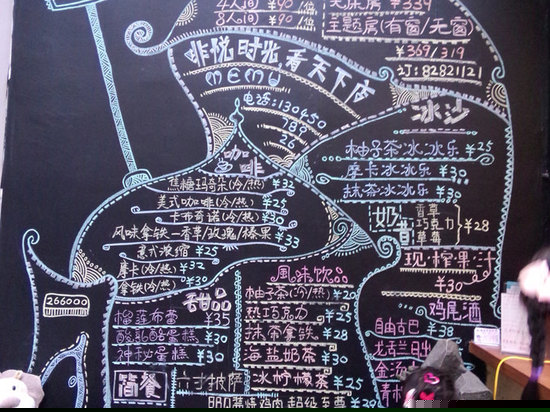 4人间 ¥90/位
8人间 ¥90/位
大床房 ¥339
主题房(有窗/无窗)
¥369/319
订:82821121
啡悦时光看天下店
MEMU
电话:130450
789
26
咖啡
焦糖玛奇朵(冷/热) ¥32
美式咖啡(冷/热) ¥25
卡布奇诺(冷/热) ¥30
风味拿铁-香草/玫瑰/榛果 ¥33
意式浓缩 ¥25
摩卡(冷/热) ¥32
拿铁(冷/热) ¥30
冰沙
柚子茶冰冰乐 ¥25
摩卡冰冰乐 ¥30
抹茶冰冰乐 ¥30
奶昔
香草
巧克力
草莓
¥28
现榨果汁
¥30
鸡尾酒
自由古巴 ¥38
龙舌兰日出
金汤
青柠
266000
甜品
榴莲布蕾 ¥35
酸乳酪蛋糕 ¥30
神秘蛋糕 ¥30
风味饮品
柚子茶(冷/热) ¥20
热巧克力 ¥30
抹茶拿铁 ¥28
海盐奶茶 ¥30
冰柠檬茶 ¥25
简餐
六寸披萨
鸡肉 超级至尊